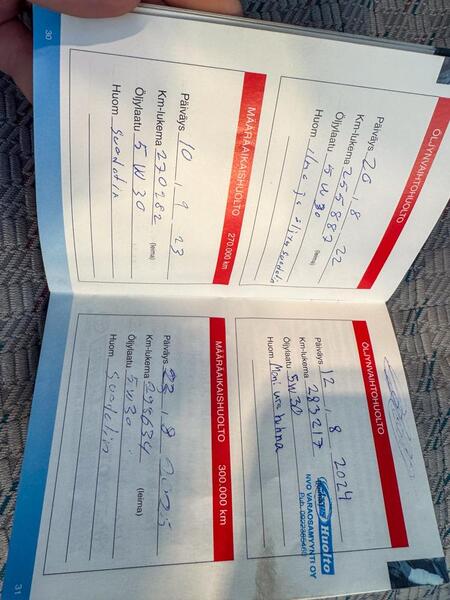 ÖLJYNVAIHTOHUOLTO
Päiväys 26 . 8 . 22
Km-lukema 255887
Öljylaatu 5W30 (leima)
Huom
MÄÄRÄAIKAISHUOLTO 270.000 km
Päiväys 10 . 9 . 23
Km-lukema 270282
Öljylaatu 5W30 (leima)
Huom Suodatin
30
ÖLJYNVAIHTOHUOLTO
Päiväys 12 . 8 . 2024
Km-lukema 283217
Öljylaatu 5W30
Huom Moniurahihna
Huolto
NVO VARAOSAMYYNTI OY
MÄÄRÄAIKAISHUOLTO 300.000 km
Päiväys 23 . 8 .
Km-lukema 294634
Öljylaatu 5W30 (leima)
Huom Suodatin
31